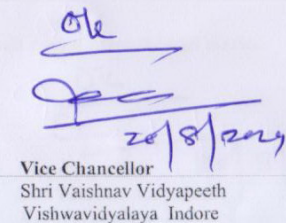 Ok
Vice Chancellor
Shri Vaishnav Vidyapeeth
Vishwavidyalaya Indore